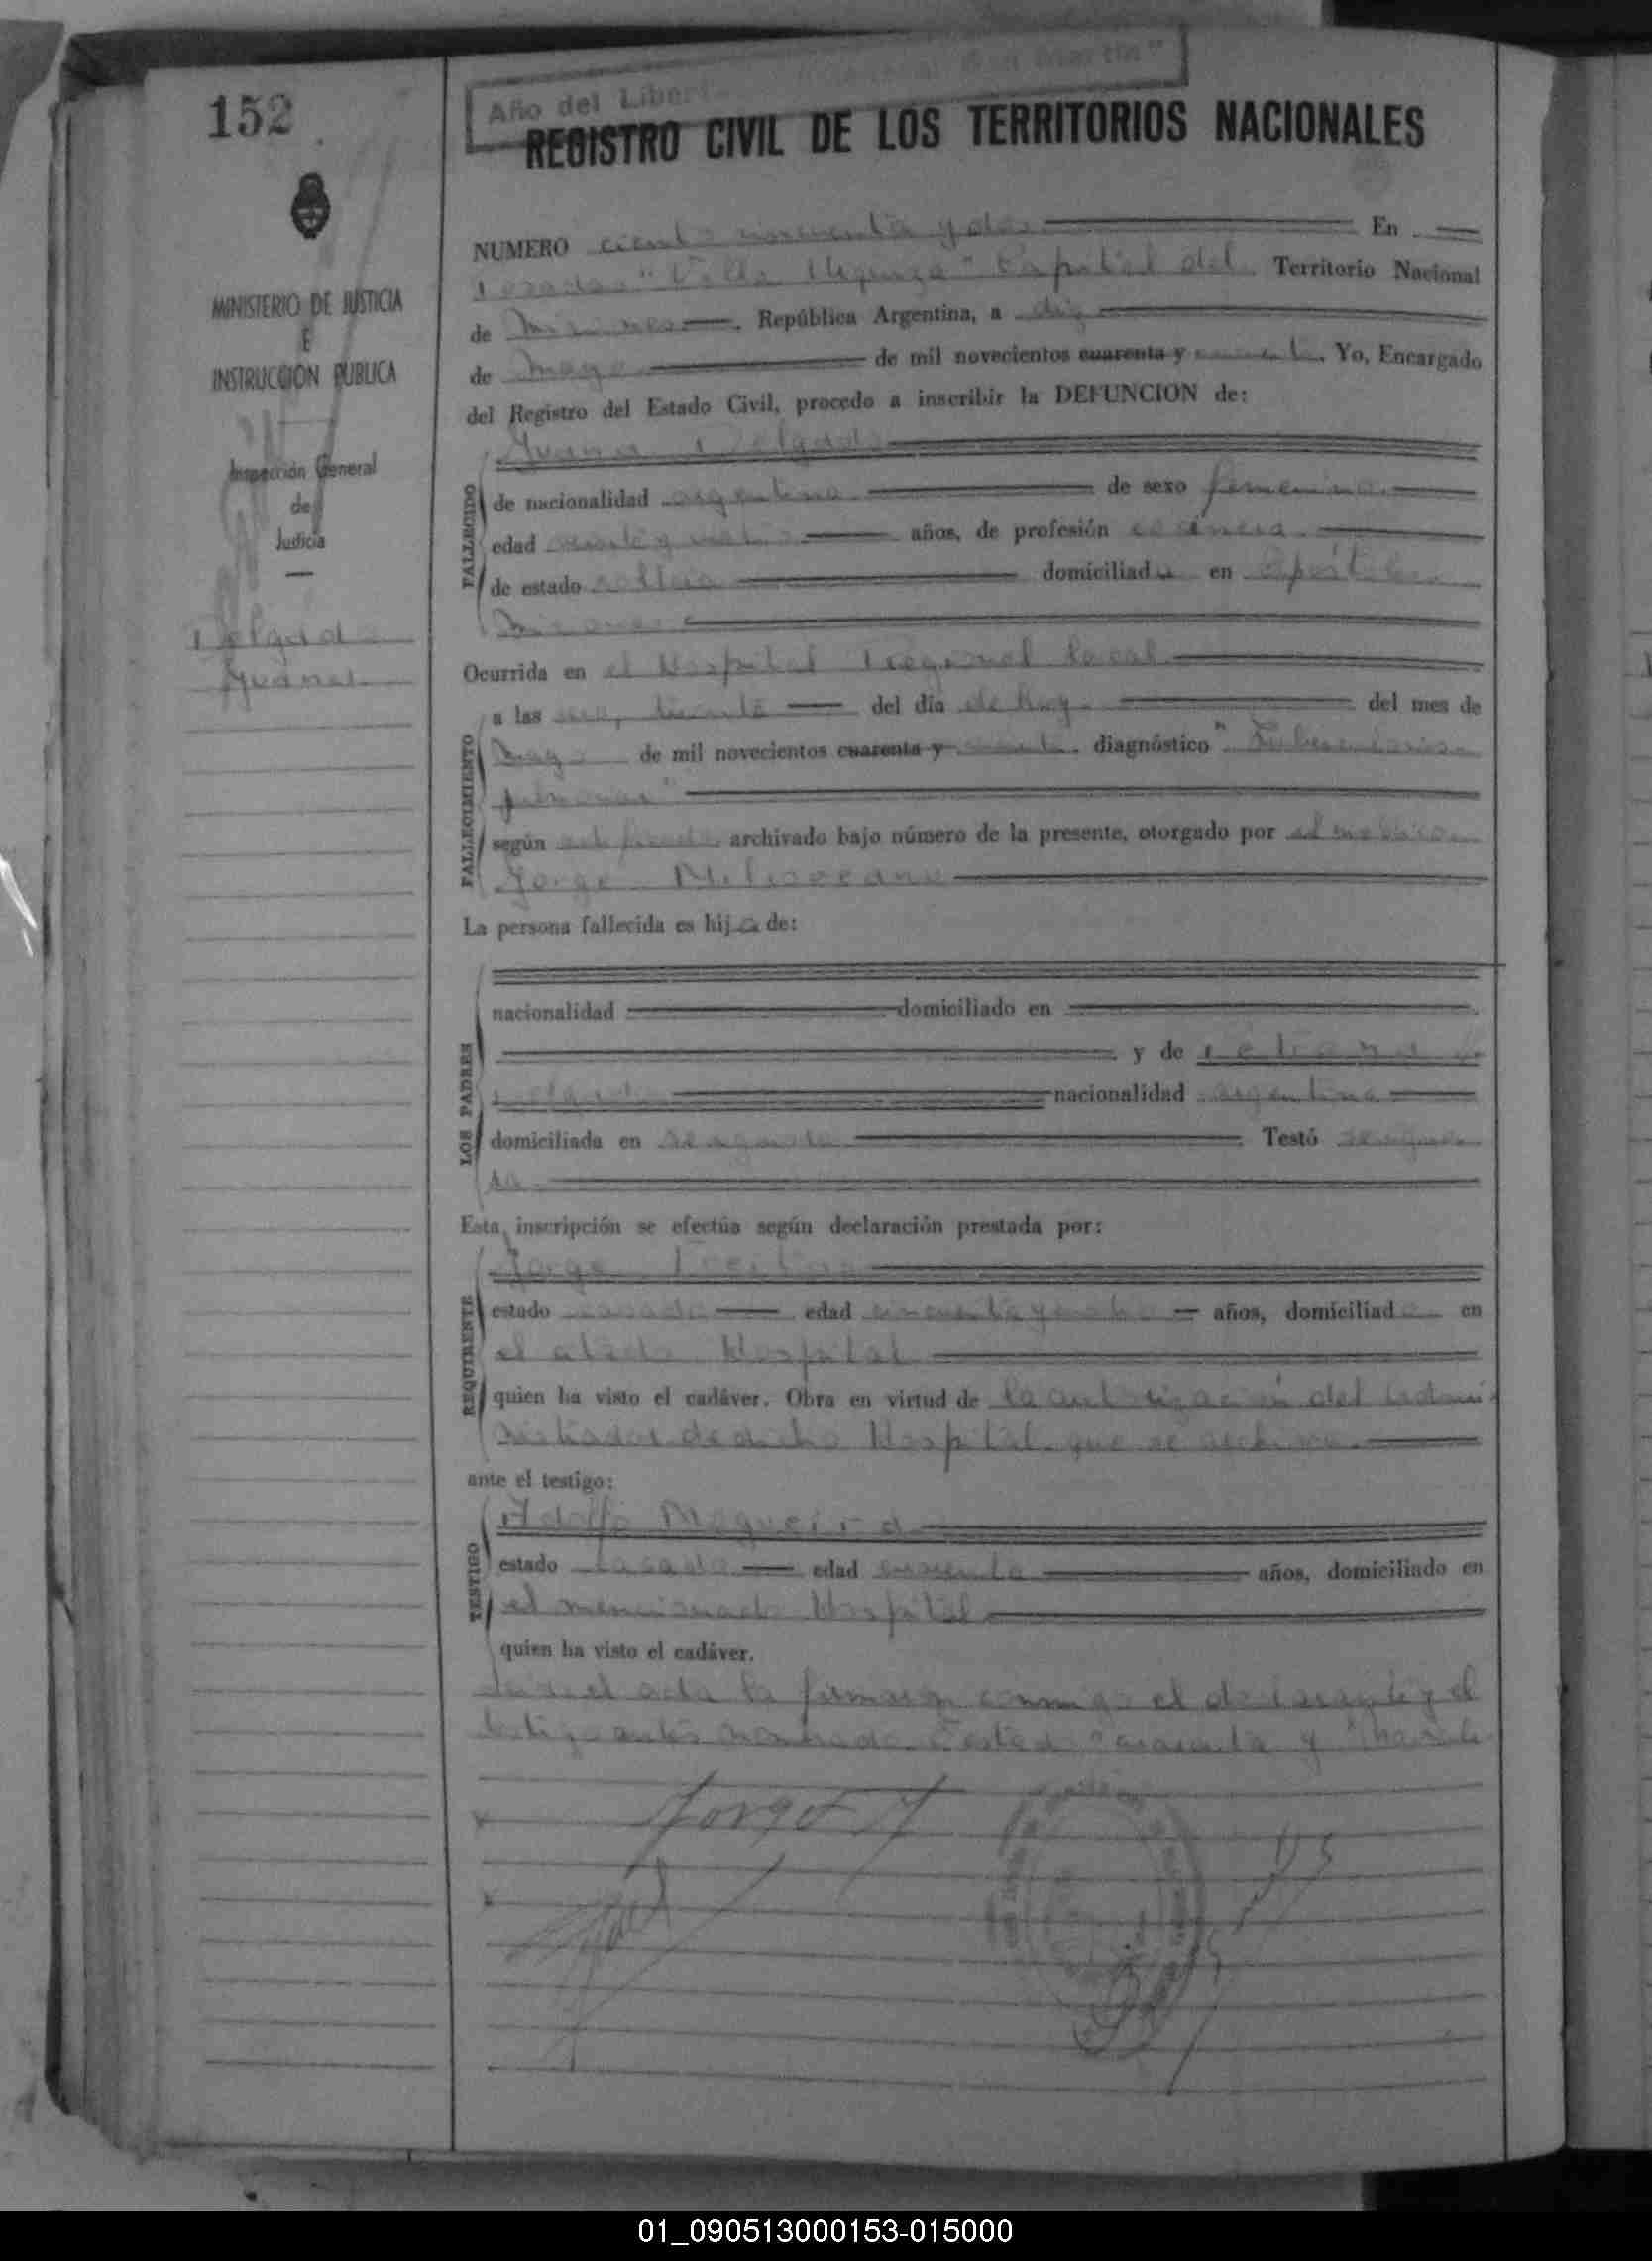 152
Año del Libert
REGISTRO CIVIL DE LOS TERRITORIOS NACIONALES
MINISTERIO DE JUSTICIA
E
INSTRUCCION PUBLICA
Inspección General
de
Judicia
Delgado
Juana
NUMERO ciento noventa y dos En
Posadas "Villa Urquiza" Capital del Territorio Nacional
de Misiones República Argentina, a diez
de Mayo de mil novecientos cuarenta y cincuenta Yo, Encargado
del Registro del Estado Civil, procedo a inscribir la DEFUNCION de:
Juana Delgado
FALLECIDO
de nacionalidad argentina de sexo femenino
edad años, de profesión cocinera
de estado soltera domiciliada en Apóstoles
Misiones
Ocurrida en el Hospital Regional local
FALLECIMIENTO
a las del día de hoy del mes de
Mayo de mil novecientos cuarenta y cincuenta diagnóstico "Tuberculosis
pulmonar"
según certificado archivado bajo número de la presente, otorgado por el médico
Jorge
La persona fallecida es hija de:
LOS PADRES
nacionalidad domiciliado en
y de
Delgado nacionalidad argentina
domiciliada en se ignora Testó se ignora
Esta inscripción se efectúa según declaración prestada por:
REQUIRENTE
Jorge
estado casado edad cincuenta y ocho años, domiciliado en
el citado Hospital
quien ha visto el cadáver. Obra en virtud de la autorización del Admi
nistrador de dicho Hospital que se archiva
ante el testigo:
TESTIGO
Adolfo Mogueira
estado casado edad años, domiciliado en
el mencionado Hospital
quien ha visto el cadáver.
el acta la firmaron conmigo el declarante y el
testigo antes nombrado
Jorge
01_090513000153-015000